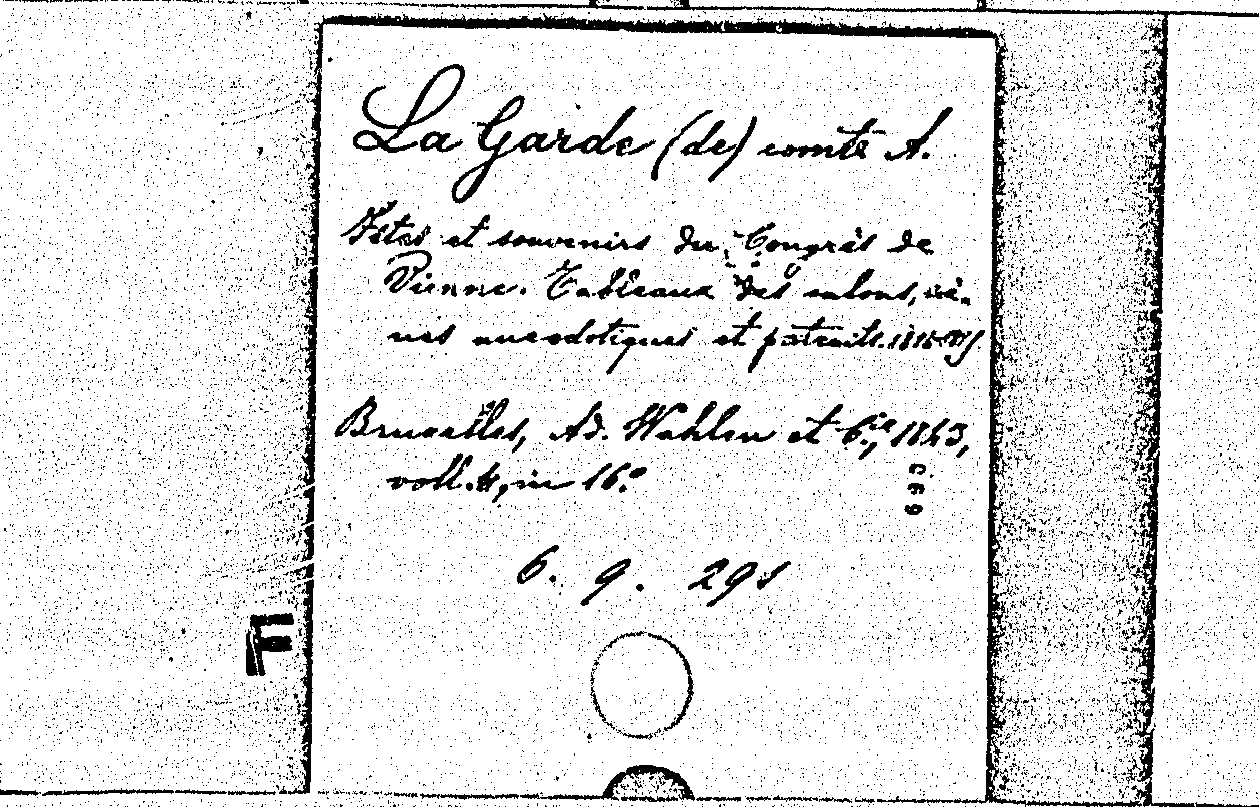 La Garde (de) comte A.
Fêtes et souvenirs du Congrès de
Vienne. Tableaux des salons, scè-
nes anecdotiques et portraits. 1814-15
Bruxelles, Ad. Wahlen et C.ie, 1843,
voll. 4, in 16.º
693
6. 9. 291
F